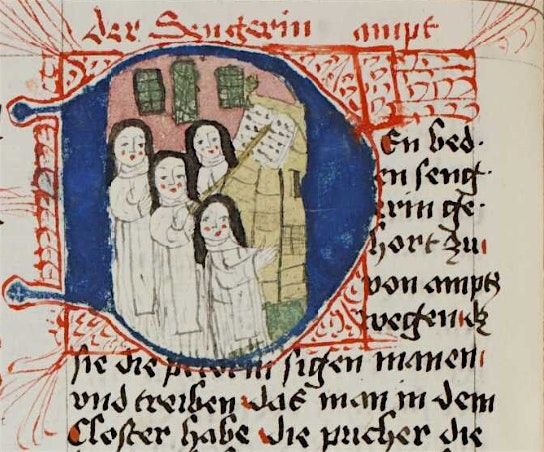 der Sengerin ampt
DEn bed-
en seng-
rrin ge-
hort zu
von ampts
wegen dz
sie die manen
vnd treiben das man in dem
Closter habe die pucher die